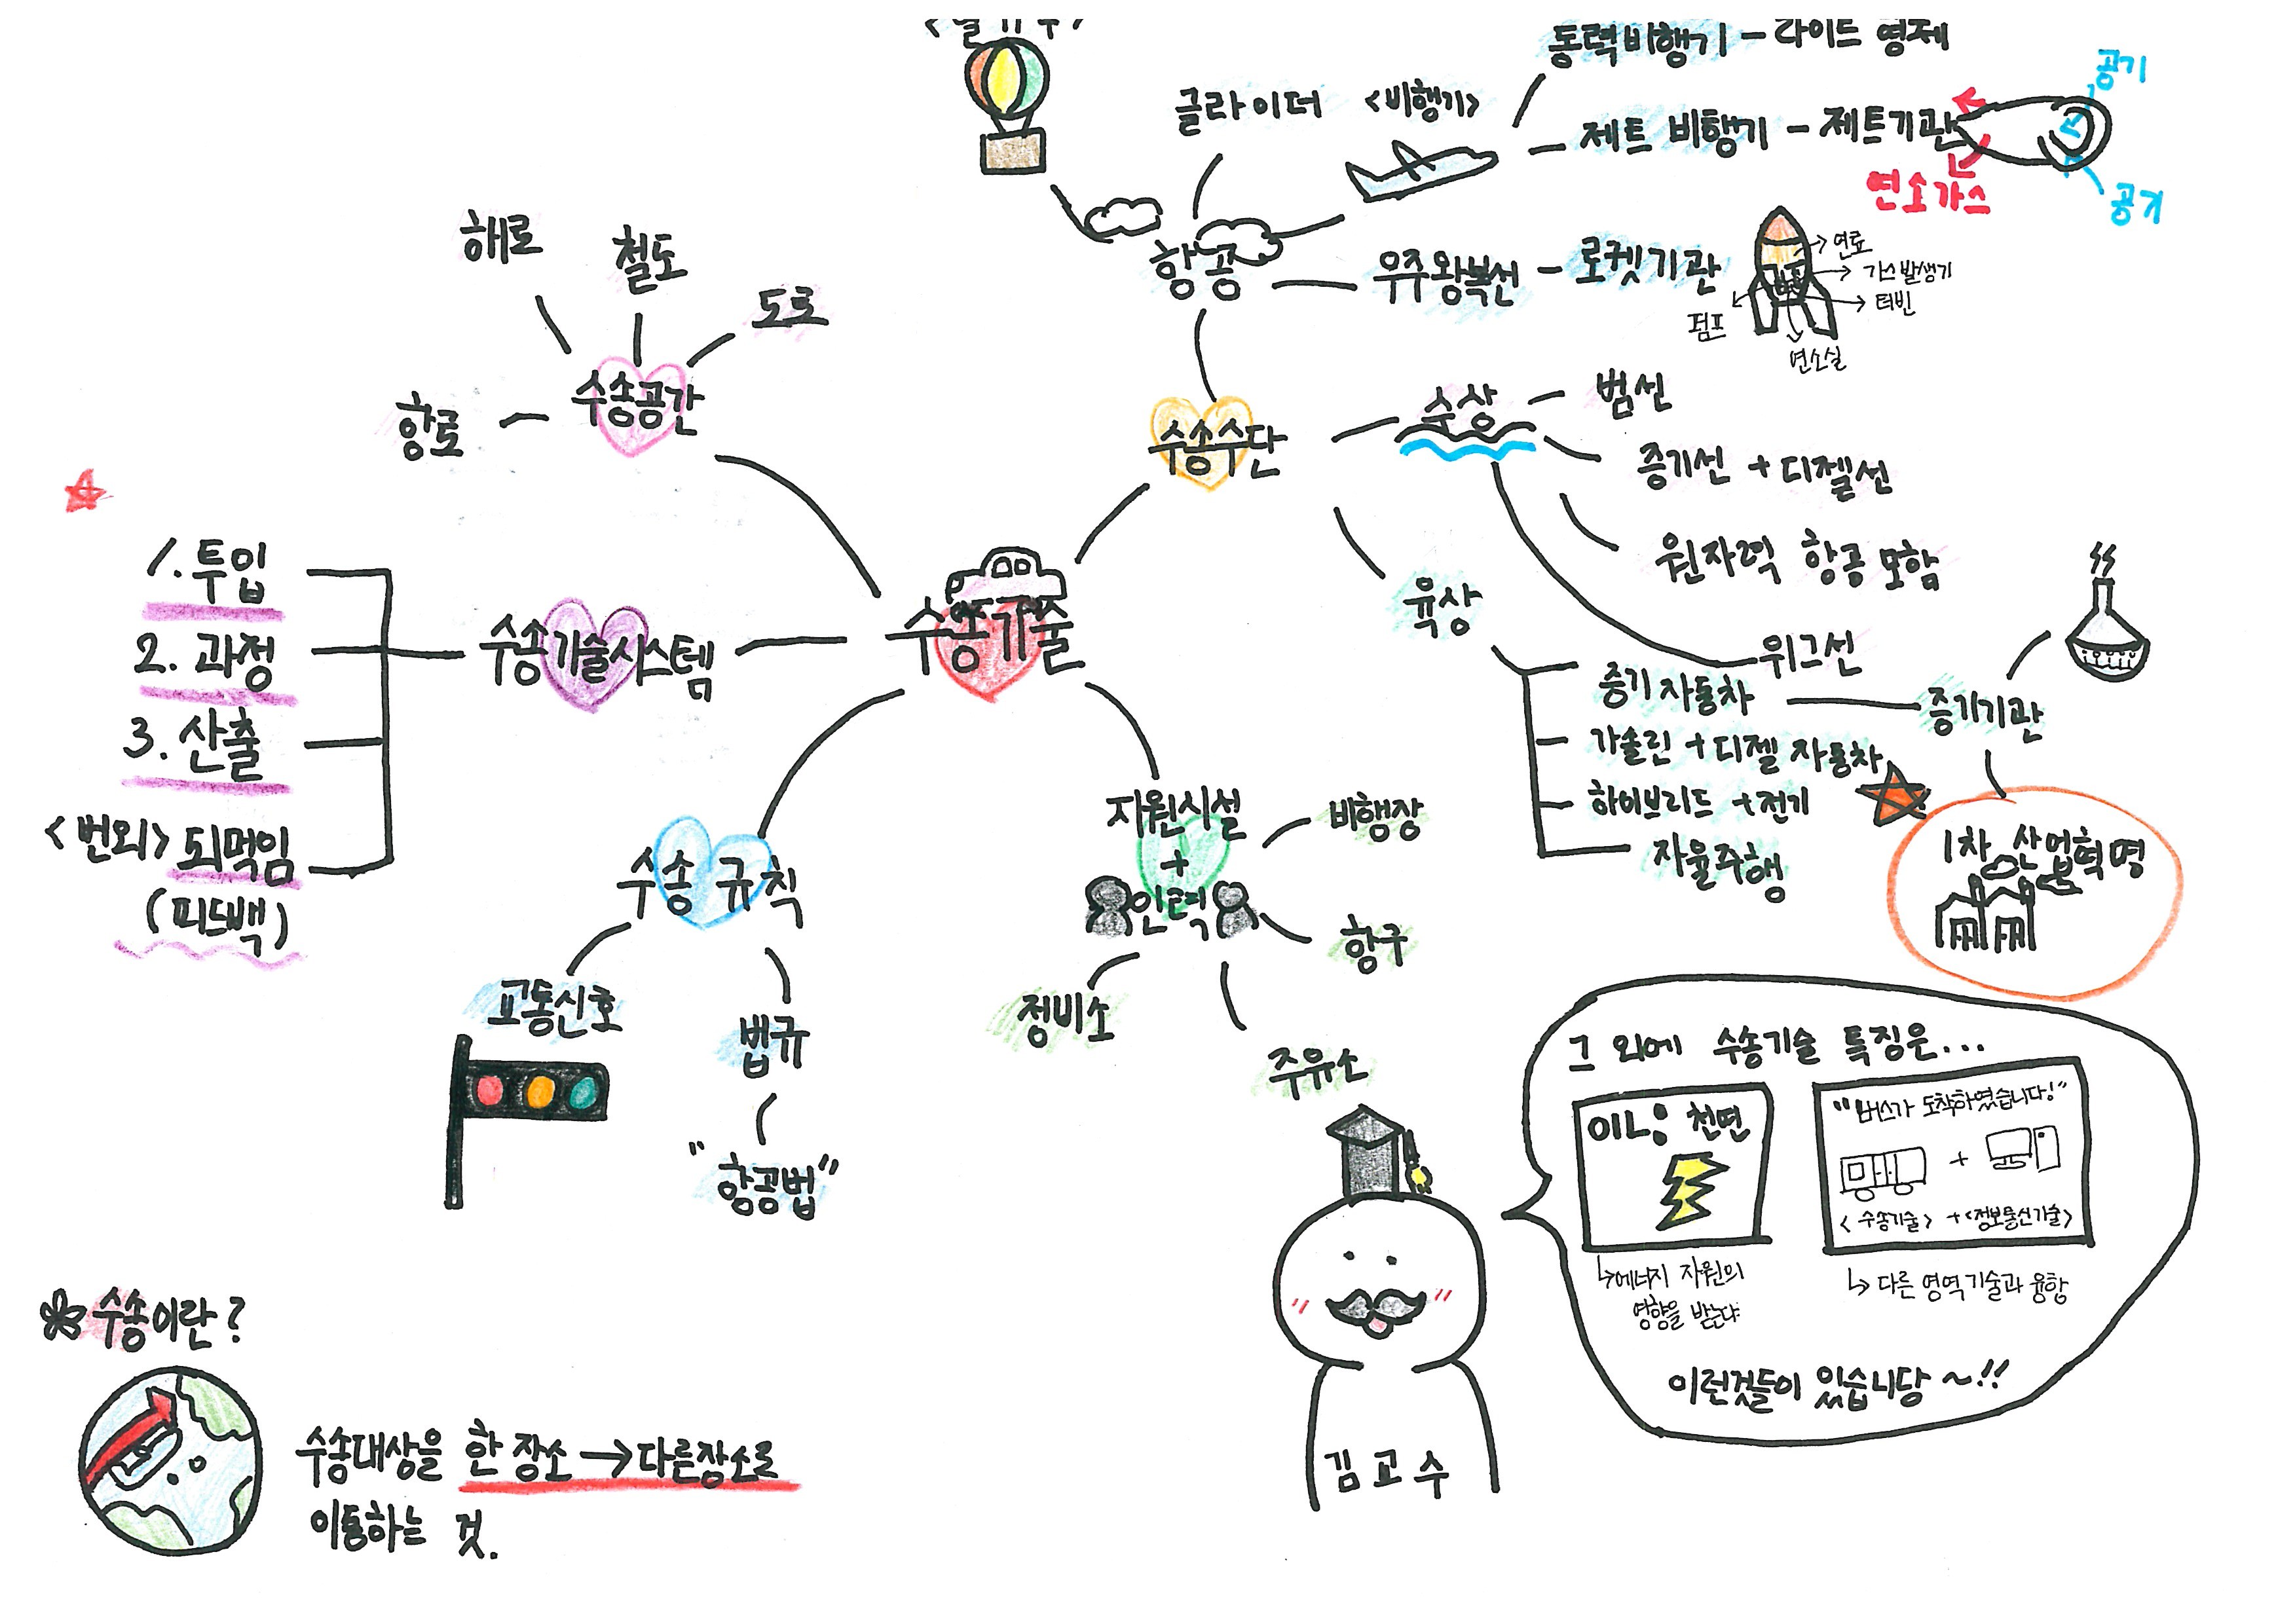 <열기구>
글라이더
<비행기>
동력비행기 - 라이트 형제
제트 비행기 - 제트기관
공기
연소가스
공기
항공
우주왕복선 - 로켓기관
연료
가스발생기
터빈
펌프
연소실
해로
철도
도로
항로
수송공간
수송수단
수상
범선
증기선 + 디젤선
원자력 항공모함
위그선
육상
증기 자동차
증기기관
가솔린 + 디젤 자동차
하이브리드 + 전기
자율주행
1차 산업혁명
수송기술
1. 투입
2. 과정
3. 산출
<번외> 되먹임
(피드백)
수송기술시스템
수송 규칙
교통신호
법규
"항공법"
지원시설
+
인력
비행장
항구
정비소
주유소
그 외에 수송기술 특징은...
이니: 천연
↳에너지 자원의
영향을 받는다
"버스가 도착하였습니다!"
+
<수송기술> + <정보통신기술>
↳ 다른 영역 기술과 융합
이런것들이 있습니당 ~!!
김교수
수송이란?
수송대상을 한 장소 → 다른장소로
이동하는 것.